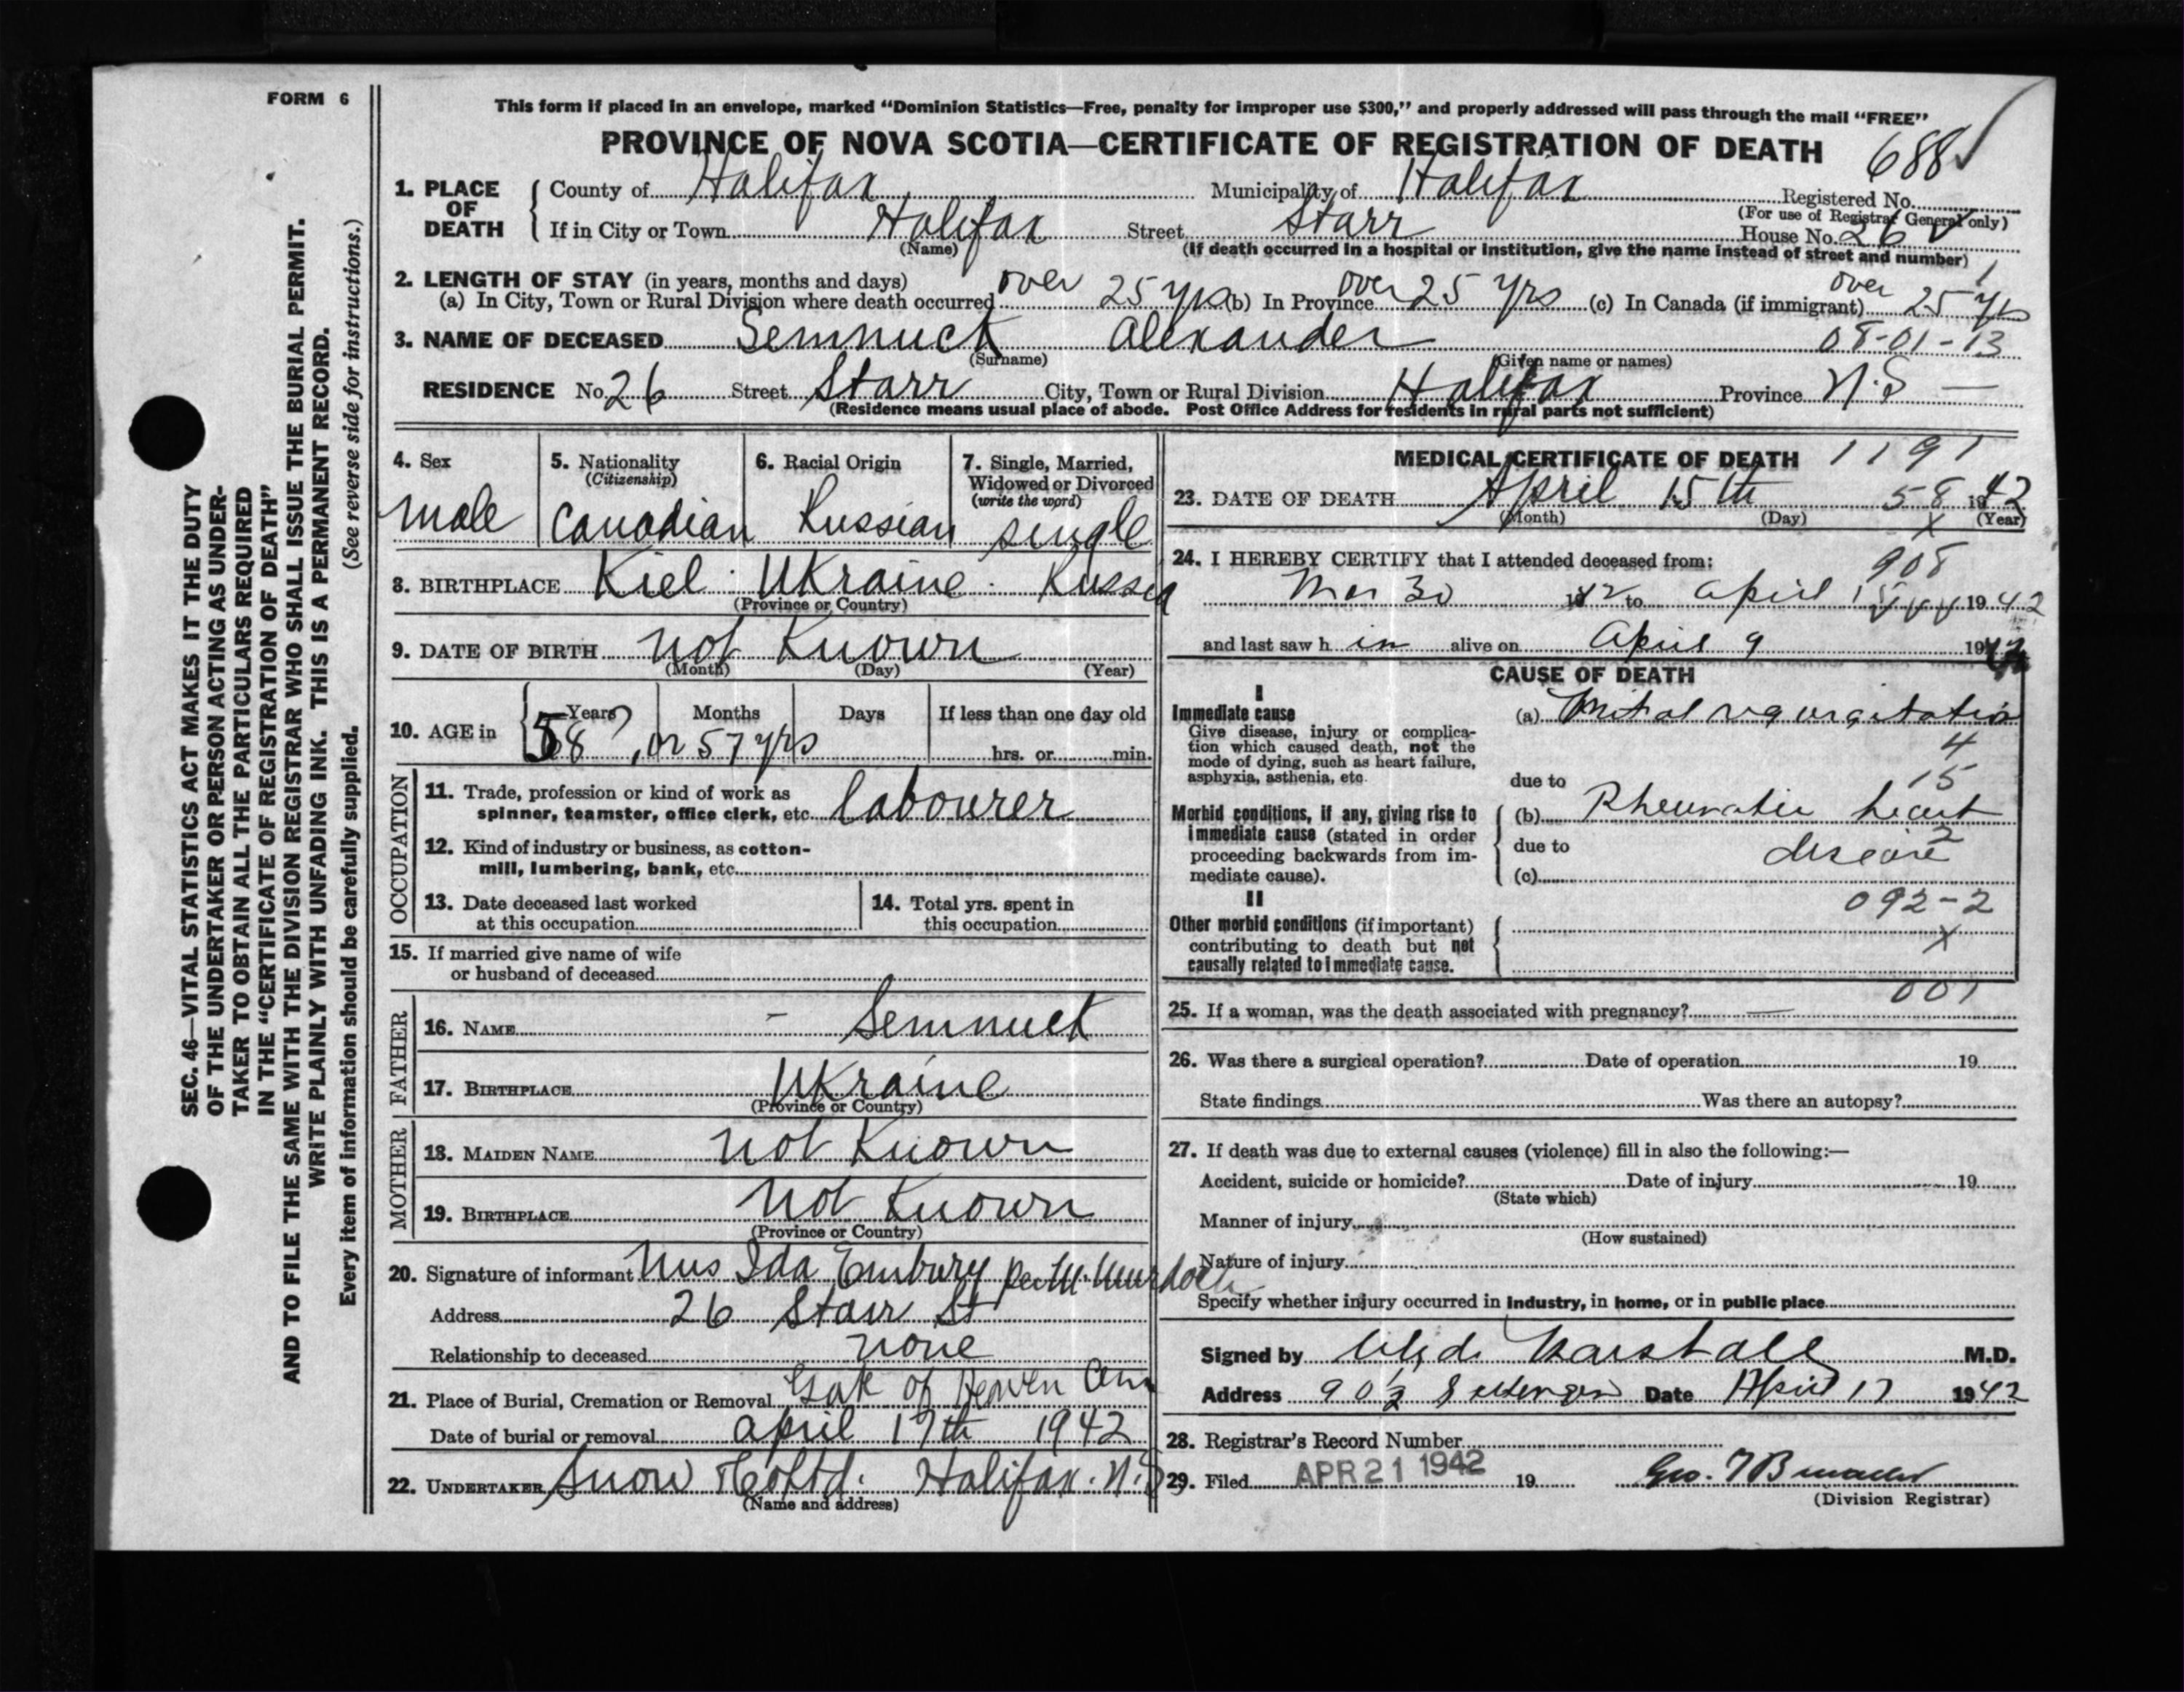 FORM 6
SEC. 46—VITAL STATISTICS ACT MAKES IT THE DUTY
OF THE UNDERTAKER OR PERSON ACTING AS UNDER-
TAKER TO OBTAIN ALL THE PARTICULARS REQUIRED
IN THE "CERTIFICATE OF REGISTRATION OF DEATH"
AND TO FILE THE SAME WITH THE DIVISION REGISTRAR WHO SHALL ISSUE THE BURIAL PERMIT.
WRITE PLAINLY WITH UNFADING INK. THIS IS A PERMANENT RECORD.
Every item of information should be carefully supplied. (See reverse side for instructions.)
This form if placed in an envelope, marked "Dominion Statistics—Free, penalty for improper use $300," and properly addressed will pass through the mail "FREE"
PROVINCE OF NOVA SCOTIA—CERTIFICATE OF REGISTRATION OF DEATH 688
1. PLACE OF DEATH County of Halifax Municipality of Halifax Registered No.
(For use of Registrar General only)
If in City or Town Halifax Street Starr House No. 26
(Name) (If death occurred in a hospital or institution, give the name instead of street and number)
2. LENGTH OF STAY (in years, months and days)
(a) In City, Town or Rural Division where death occurred over 25 yrs (b) In Province over 25 yrs (c) In Canada (if immigrant) over 25 yrs
3. NAME OF DECEASED Semnuck Alexander 08-01-13
(Surname) (Given name or names)
RESIDENCE No. 26 Street Starr City, Town or Rural Division Halifax Province N.S —
(Residence means usual place of abode. Post Office Address for residents in rural parts not sufficient)
4. Sex
male
5. Nationality
(Citizenship)
Canadian
6. Racial Origin
Russian
7. Single, Married,
Widowed or Divorced
(write the word)
single
8. BIRTHPLACE Kiel. Ukraine. Russia
(Province or Country)
9. DATE OF BIRTH not Known
(Month) (Day) (Year)
10. AGE in Years Months Days If less than one day old
58, or 57 yrs hrs. or min.
OCCUPATION
11. Trade, profession or kind of work as
spinner, teamster, office clerk, etc. labourer
12. Kind of industry or business, as cotton-
mill, lumbering, bank, etc.
13. Date deceased last worked
at this occupation
14. Total yrs. spent in
this occupation
15. If married give name of wife
or husband of deceased
FATHER
16. NAME - Semnuck
17. BIRTHPLACE Ukraine
(Province or Country)
MOTHER
18. MAIDEN NAME not Known
19. BIRTHPLACE not Known
(Province or Country)
20. Signature of informant Mrs Ida Embury Murdoch
Address 26 Starr St
Relationship to deceased none
21. Place of Burial, Cremation or Removal Gate of Heaven Cem
Date of burial or removal april 17th 1942
22. UNDERTAKER Snow & Co Ltd. Halifax. N.S
(Name and address)
MEDICAL CERTIFICATE OF DEATH 1191
23. DATE OF DEATH April 15th 58 1942
(Month) (Day) (Year)
x
24. I HEREBY CERTIFY that I attended deceased from:
908
Mar 30 1942 to april 15 1942
and last saw h im alive on April 9 1942
CAUSE OF DEATH
I
Immediate cause
Give disease, injury or complica-
tion which caused death, not the
mode of dying, such as heart failure,
asphyxia, asthenia, etc.
(a) Mitral regurgitation
4
15
due to
Morbid conditions, if any, giving rise to
immediate cause (stated in order
proceeding backwards from im-
mediate cause).
(b) Rheumatic heart
2
due to disease
(c)
II
092-2
Other morbid conditions (if important)
contributing to death but not
causally related to immediate cause.
x
001
25. If a woman, was the death associated with pregnancy? —
26. Was there a surgical operation? Date of operation 19
State findings Was there an autopsy?
27. If death was due to external causes (violence) fill in also the following:—
Accident, suicide or homicide? Date of injury 19
(State which)
Manner of injury
(How sustained)
Nature of injury
Specify whether injury occurred in industry, in home, or in public place
Signed by Clyde Marshall M.D.
Address 90½ Date April 17 1942
28. Registrar's Record Number
29. Filed APR 21 1942 19 Geo.
(Division Registrar)